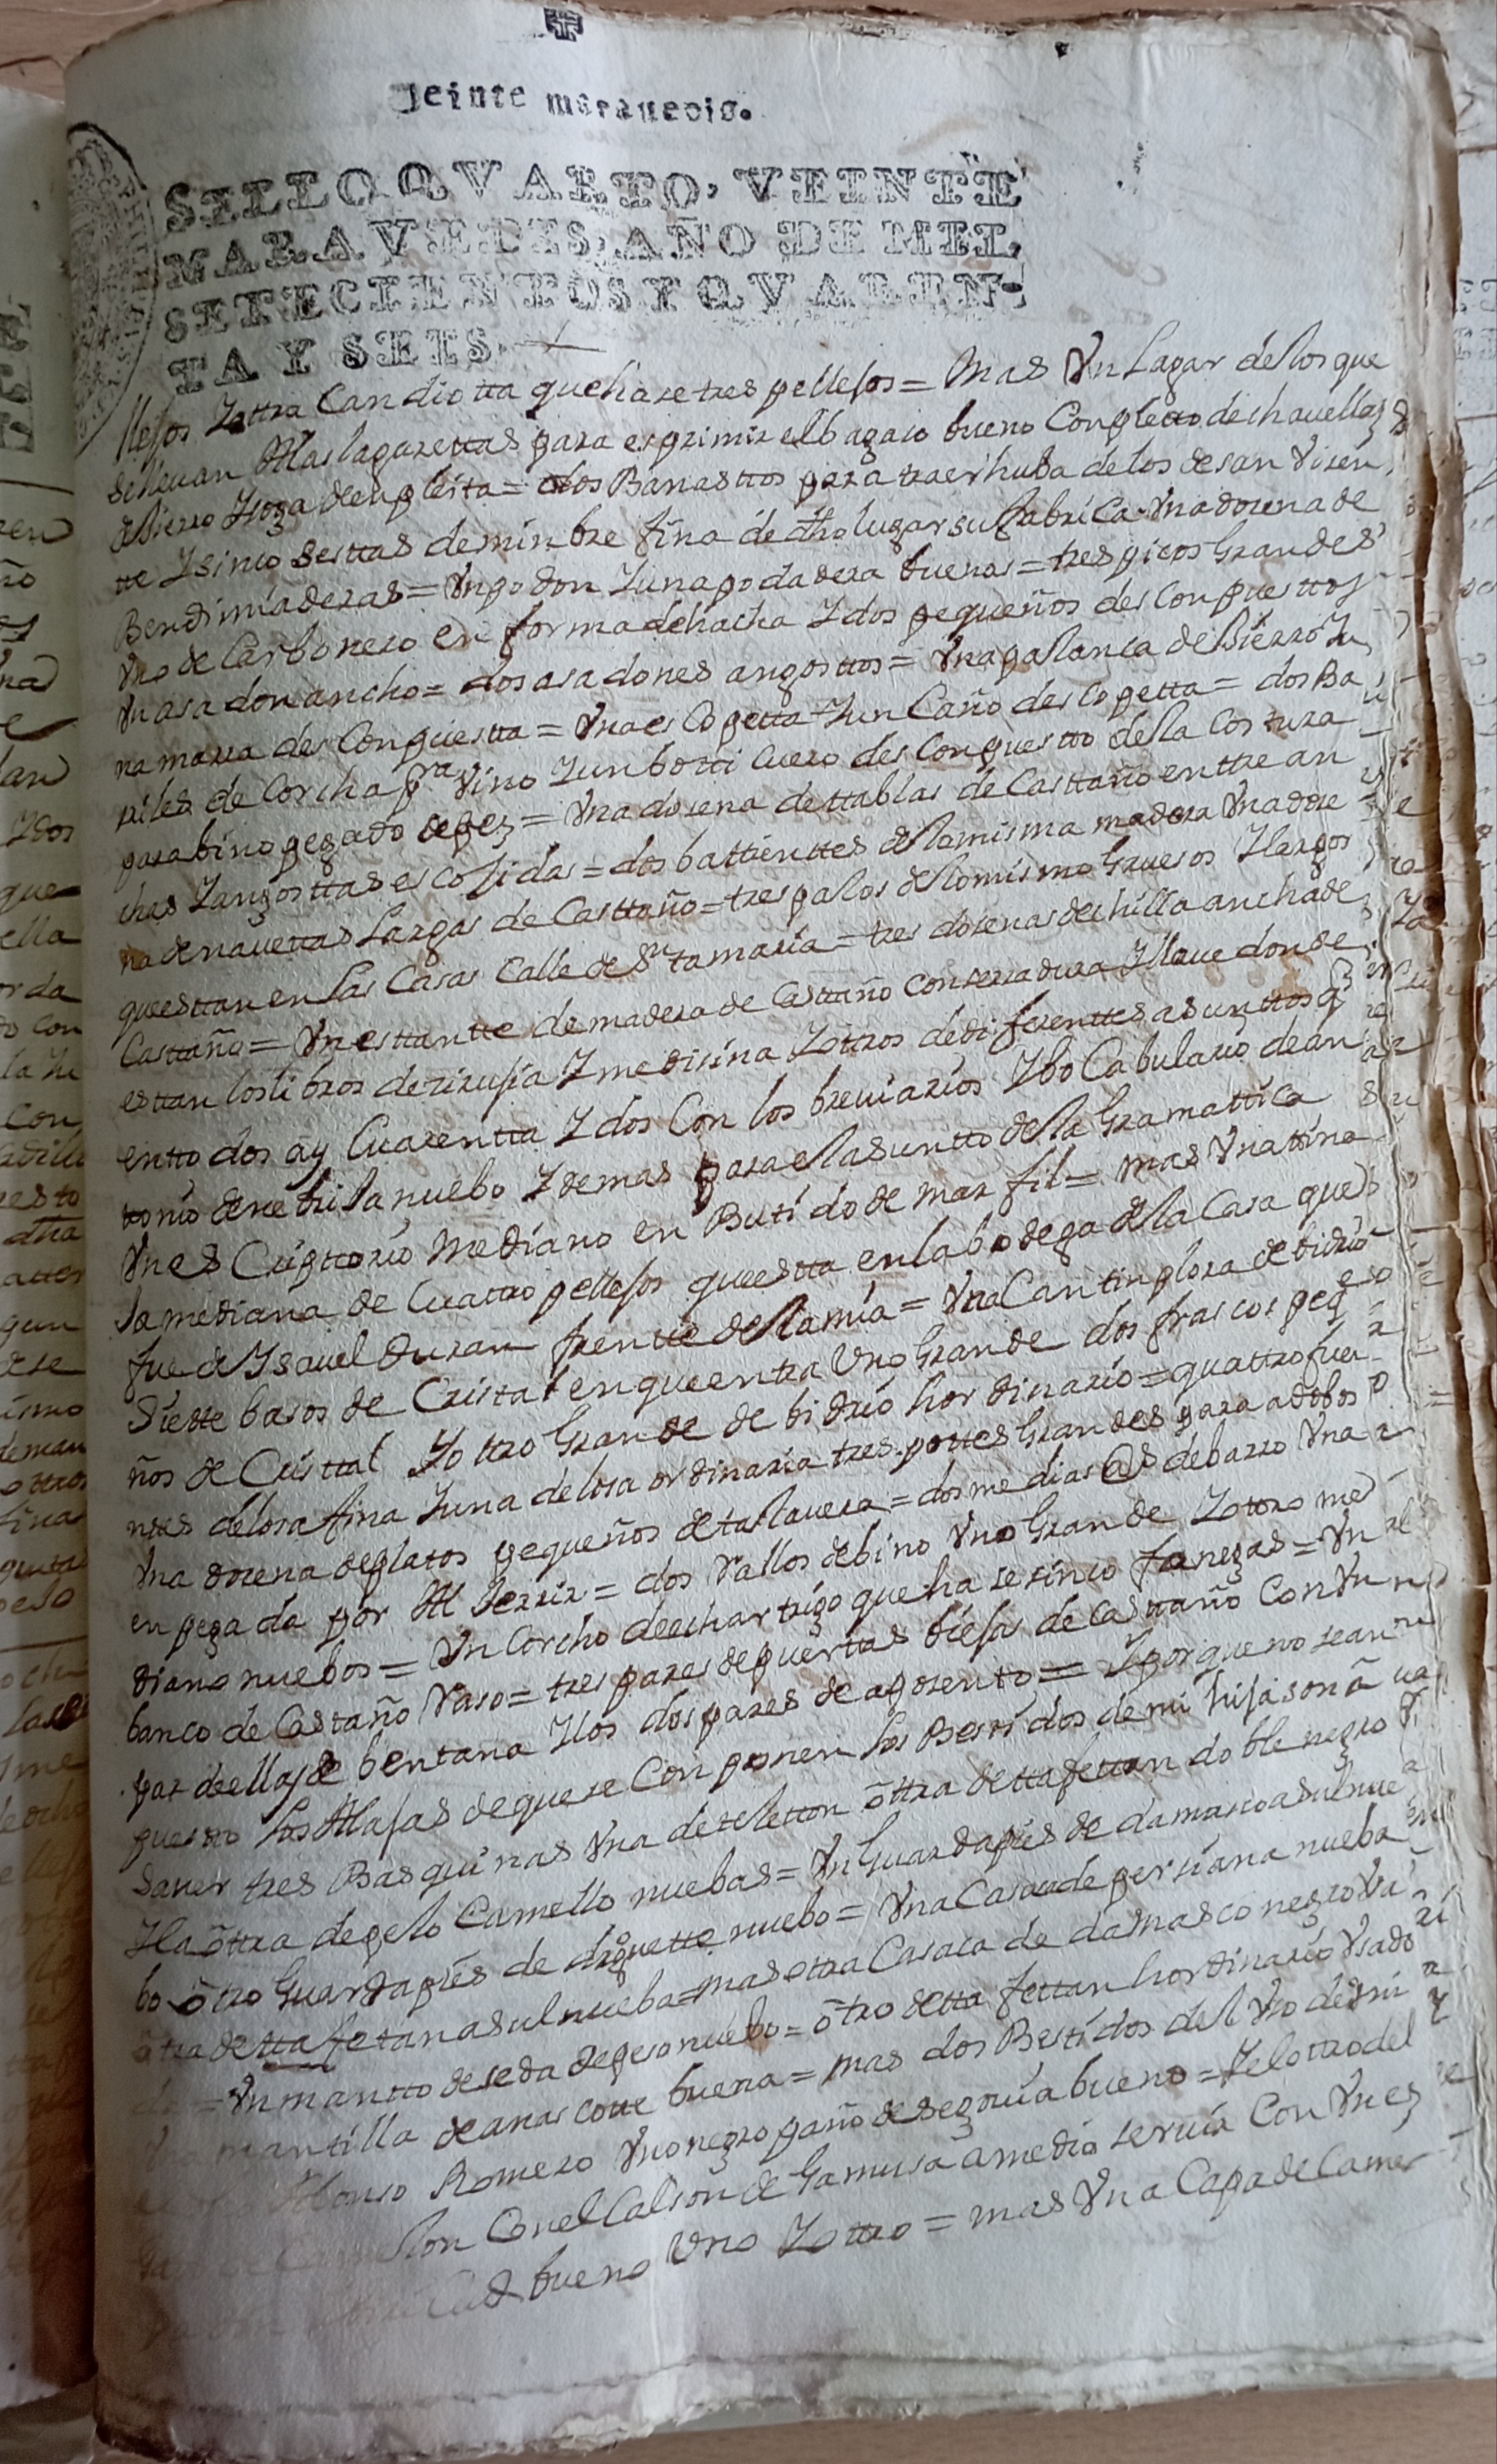 Veinte marauedis.
SELLO QVARTO, VEINTE
MARAVEDIS, AÑO DE MIL
SETECIENTOS Y QVAREN-
TA Y SEIS.
llejos Yottra Candiotta que hase tres pellejos = Mas Vn Lagar de los que
se lleuan A las lagarettas para exprimir el bagaso bueno Conpletto de chauettas
de hierro Y soga de enpleita = dos Banasttos para traer huba de los de san Visen
tte Y sinco sesttas de minbre fina de dho lugar su fabrica Vna dosena de
Bendimiaderas = Vn podon Y una podadera buenas = tres picos Grandes
Vno de Carbonero en forma de hacha Y dos pequeños descompuesttos
Vn asadon ancho = dos asadones angosttos = Vna palanca de hierro Y u
na marra descompuestta = Vna escopetta Y un Caño de escopetta = dos Ba
riles de Corcha pra Vino Y un botti Cuero descompuestto de la Costura
para bino pegado de pez = Vna dosena de ttablas de Casttaño enttre an
chas Y angosttas escojidas = dos battienttes de la misma madera Vna dose
na de nauettas Largas de Casttaño = tres palos de lo mismo Gruesos Y largos
que esttan en las Casas Calle de Sta maria = tres dosenas de chilla ancha de
Casttaño = Vn esttantte de madera de Casttaño Con serradura Y llaue donde
esttan los libros de sirujia Y medisina Y ottros de diferenttes asunttos q
en todos ay Cuarentta Y dos Con los breuiarios Y bocabulario de an
tonio de nebrija nuebo Y demas para el asuntto de la Gramattica
Vn esCripttorio Mediano enButido de marfil = mas Vna ttina
ja mediana de Cuattro pellejos que estta en la bodega de la Casa que
fue de Ysauel Duran frentte de la mia = Vna Cantinplora de bidrio
Siette basos de Cristal en que entra Vno Grande dos frascos peque
ños de Cristtal Y ottro Grande de bidrio hordinario = quattro fuen
ttes de losa fina Y una de losa ordinaria tres pottes Grandes para adobos
Vna dosena de platos pequeños de talauera = dos medias @s de barro Vna
enpegada por Al Serrir = dos Vallos de bino Vno Grande Y ottro me
diano nuebos = Vn Corcho de echar trigo que hase sinco fanegas = Vn
banco de Castaño Raso = tres pares de puerttas biejas de Casttaño Con Vn
par de ellas de bentana Y los dos pares de aposento = Y porque no sean
puestto las Alajas de que se Componen los Bestidos de mi hija son â
Sauer tres Basquiñas Vna de teleton õttra de ttafettan doble negro
Y la õttra de pelo Camello nuebas = Vn Guardapies de damasco asul nue
bo õtro Guardapies de droguette nuebo = Vna Casaca de persiana nueba
õtra de ttafetan asul nueba = mas otra Casaca de damasco negro Vsa
da = Vn mantto de seda de peso nuebo = õtro de tta fettan hordinario Vsado
Vna mantilla de anascotte buena = mas dos Bestidos del Vso de mi
Alonso Romero Vno negro paño de Segouia bueno = Y el otro del
Con el Calson de Gamusa a medio seruir Con Vn
bueno Vno Y ottro = mas Vna Capa de Came